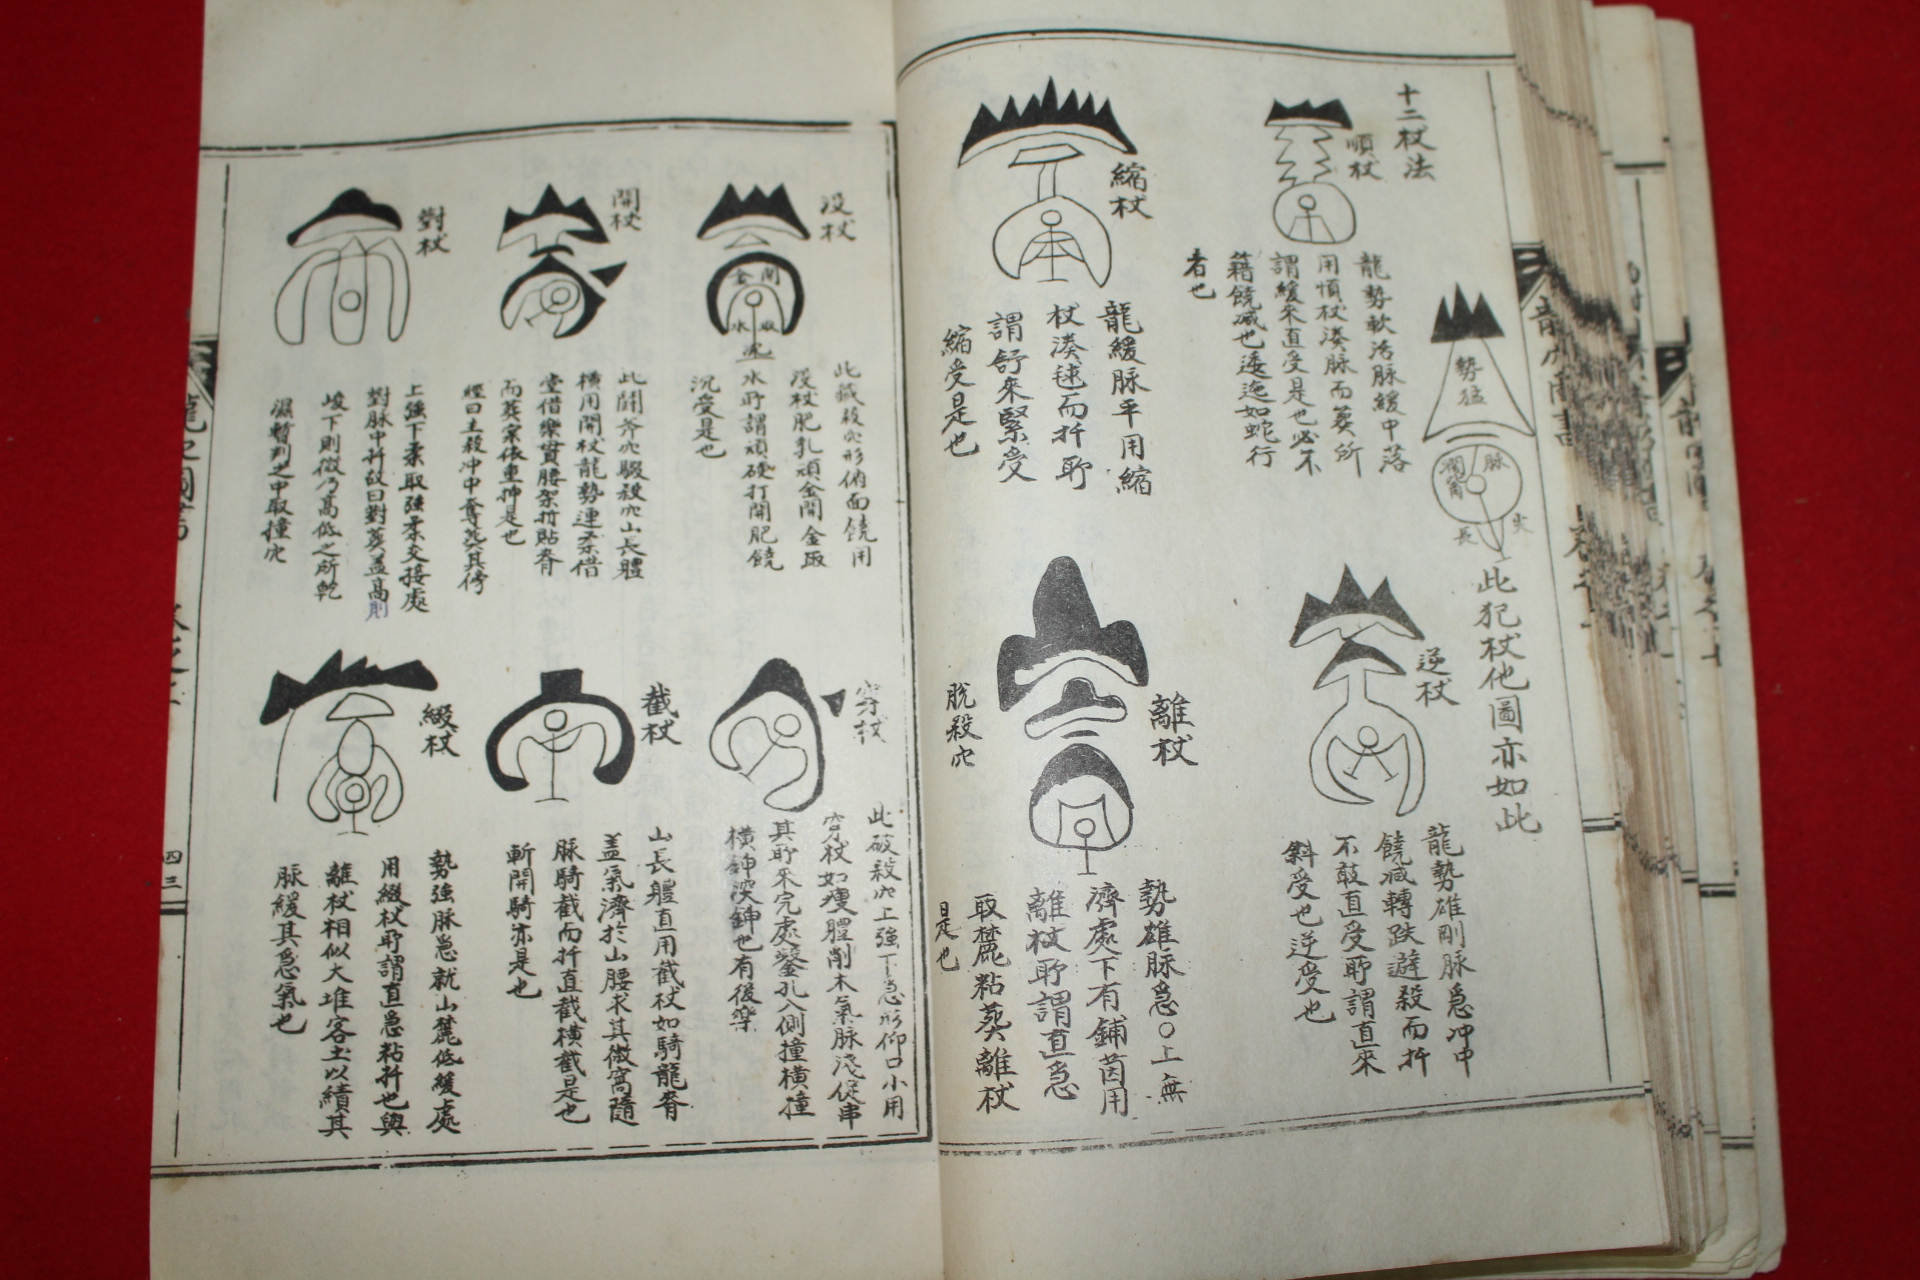 十二杖法
順杖
龍勢軟活脉緩中落
用順杖湊脉而葬所
謂緩來直受是也必不
藉饒减也逶迤如蛇行
者也
縮杖
龍緩脉平用縮
杖湊毬而扦耶
謂舒來緊受
縮受是也
勢猛
脉
長
尖
此犯杖他圖亦如此
逆杖
龍勢雄剛脉急冲中
饒减轉跌避殺而扦
不敢直受耶謂直來
斜受也逆受也
離杖
勢雄脉急○上無
濟處下有鋪茵用
離杖耶謂直急
取麓粘葬離杖
是也
脫殺穴
没杖
開
金
取
水
此藏殺穴形俯面饒用
没杖肥乳頑金開金取
水耶謂頑硬打開肥饒
沉受是也
開杖
此鬪斧穴騣殺穴山長體
横用開杖龍勢連柔借
堂借樂貫腰架折貼脊
而葬宗依重抻是也
經曰土殺冲中奪葬其傍
對杖
上強下柔取強柔交接處
對脉中扦故曰對葬盖高則
峻下則微乃高低之所乾
濕暫判之中取撞穴
穿杖
此破殺穴上強下急形仰口小用
穿杖如瘦體削木氣脉淺促串
其耶來完處鑿孔入側撞横撞
横鉮湥鉮也有後樂
截杖
山長體直用截杖如騎龍脊
盖氣濟於山腰求其微窩隨
脉騎截而扦直截横截是也
斬開騎亦是也
綴杖
勢強脉急就山麓低緩處
用綴杖耶謂直急粘扦也與
離杖相似大堆客土以績其
脉緩其急氣也
四三